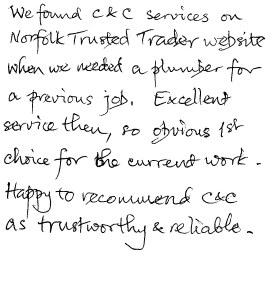 We found C & C services on
Norfolk Trusted Trader website
when we needed a plumber for
a previous job. Excellent
service then, so obvious 1st
choice for the current work.
Happy to recommend C&C
as trustworthy & reliable.